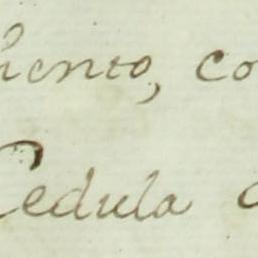 iento, co
Cedula